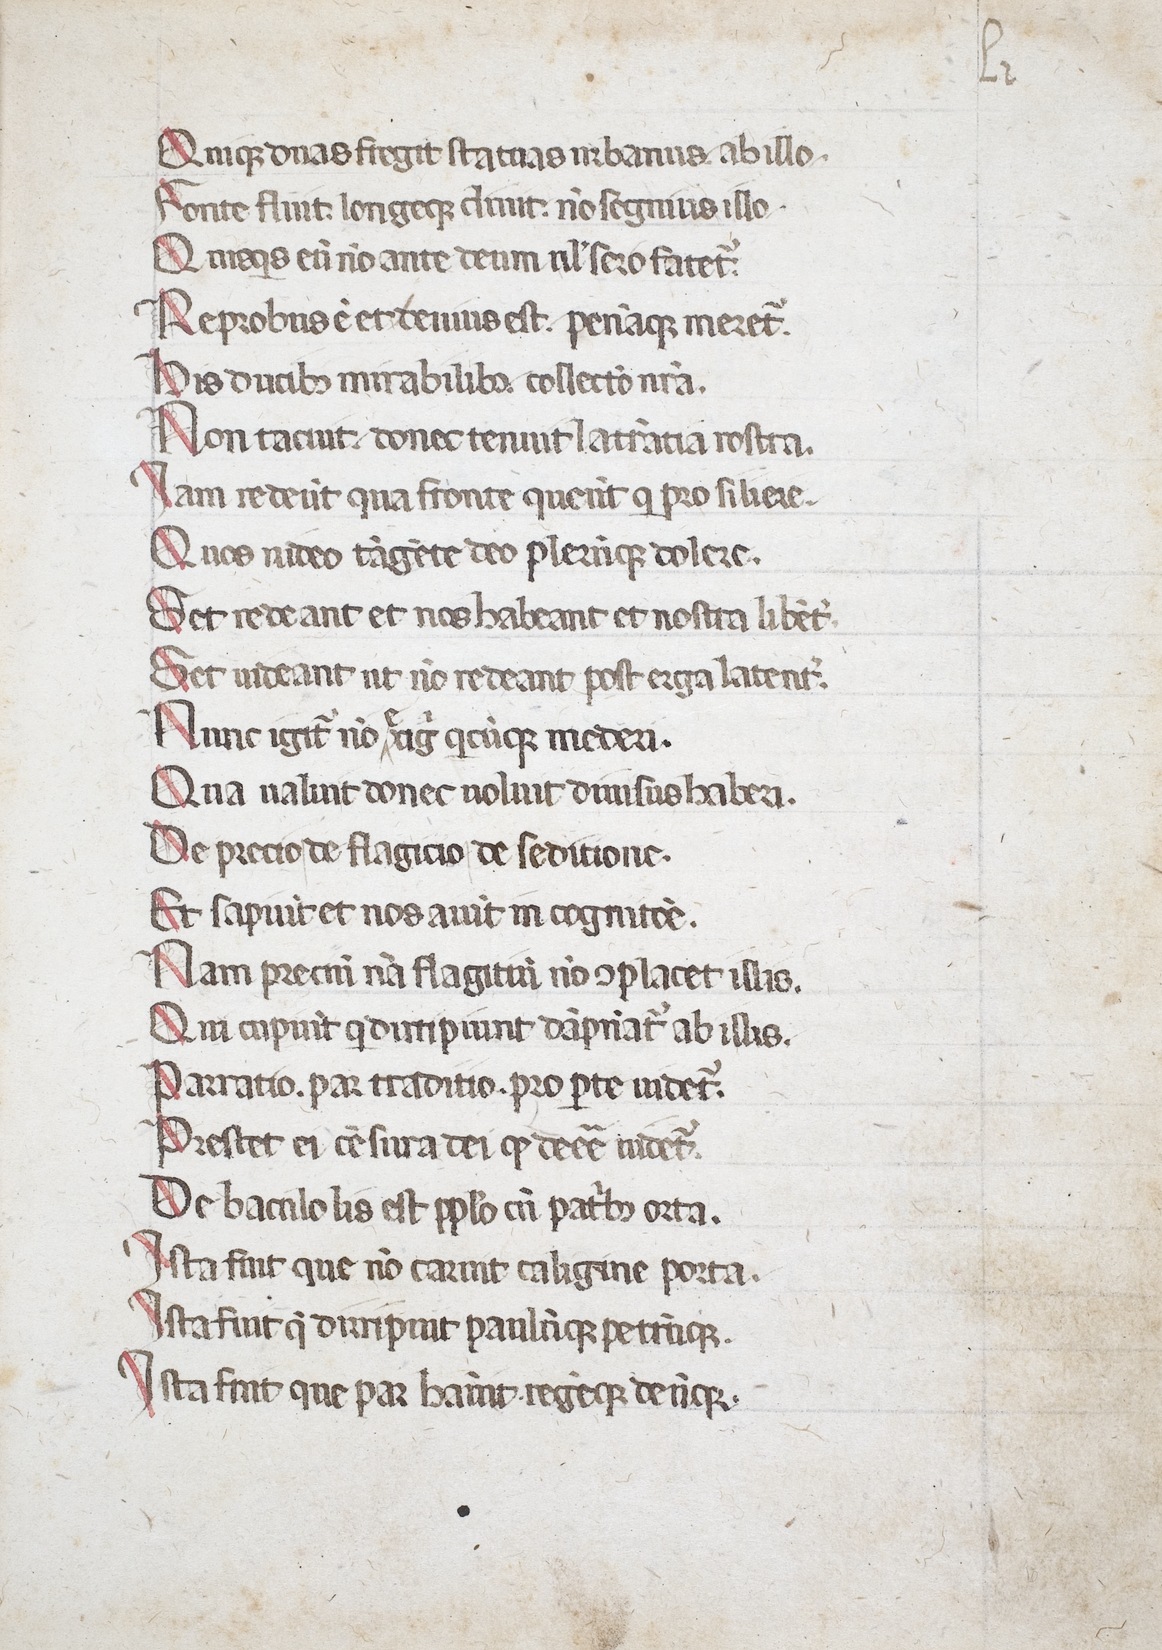 Lı
Quiqꝫ duas fregit statuas urbanus ab illo.
Fonte fluit. longeqꝫ cluit. nō segnius illo.
Quisqꝫ eñ nō ante deum uł sero fatet᷑.
Reprobus ē et deuius est. penāqꝫ meret᷑.
His ducibꝫ mirabilibꝫ. collectō nr̄a.
Non tacuit. donec tenuit latrātia rostra.
Iam redeūt qua fronte querūt q̄ prosiliere.
Quos uideo tāgēte deo plerūqꝫ dolere.
Set redeant et nos habeant et nostra libēt᷑.
Set uideant ut nō redeant post erga latent᷑.
Nunc igit᷑ nō exig᷑ qcūqꝫ mederi.
Qua ualuit donec uoluit diuisus haberi.
De precio de flagicio de seditione.
Et sapuit et nos auīt in cognitōē.
Nam preciū nā flagitiū nō ꝯplacet illis.
Qui cupiūt q̄ dirripiunt dāpnāt᷑ ab illis.
Par ratio. par traditio. pro ꝑte uidet᷑.
Prestet ei cēsura dei qꝫ deēē uidet᷑.
De baculo lis est pplo cū patribꝫ orta.
Ista fuit que nō caruit caligine porta.
Ista fuit q̄ dirripuit paulūqꝫ petrūqꝫ.
Ista fuit que par habuit. regēqꝫ deūqꝫ.